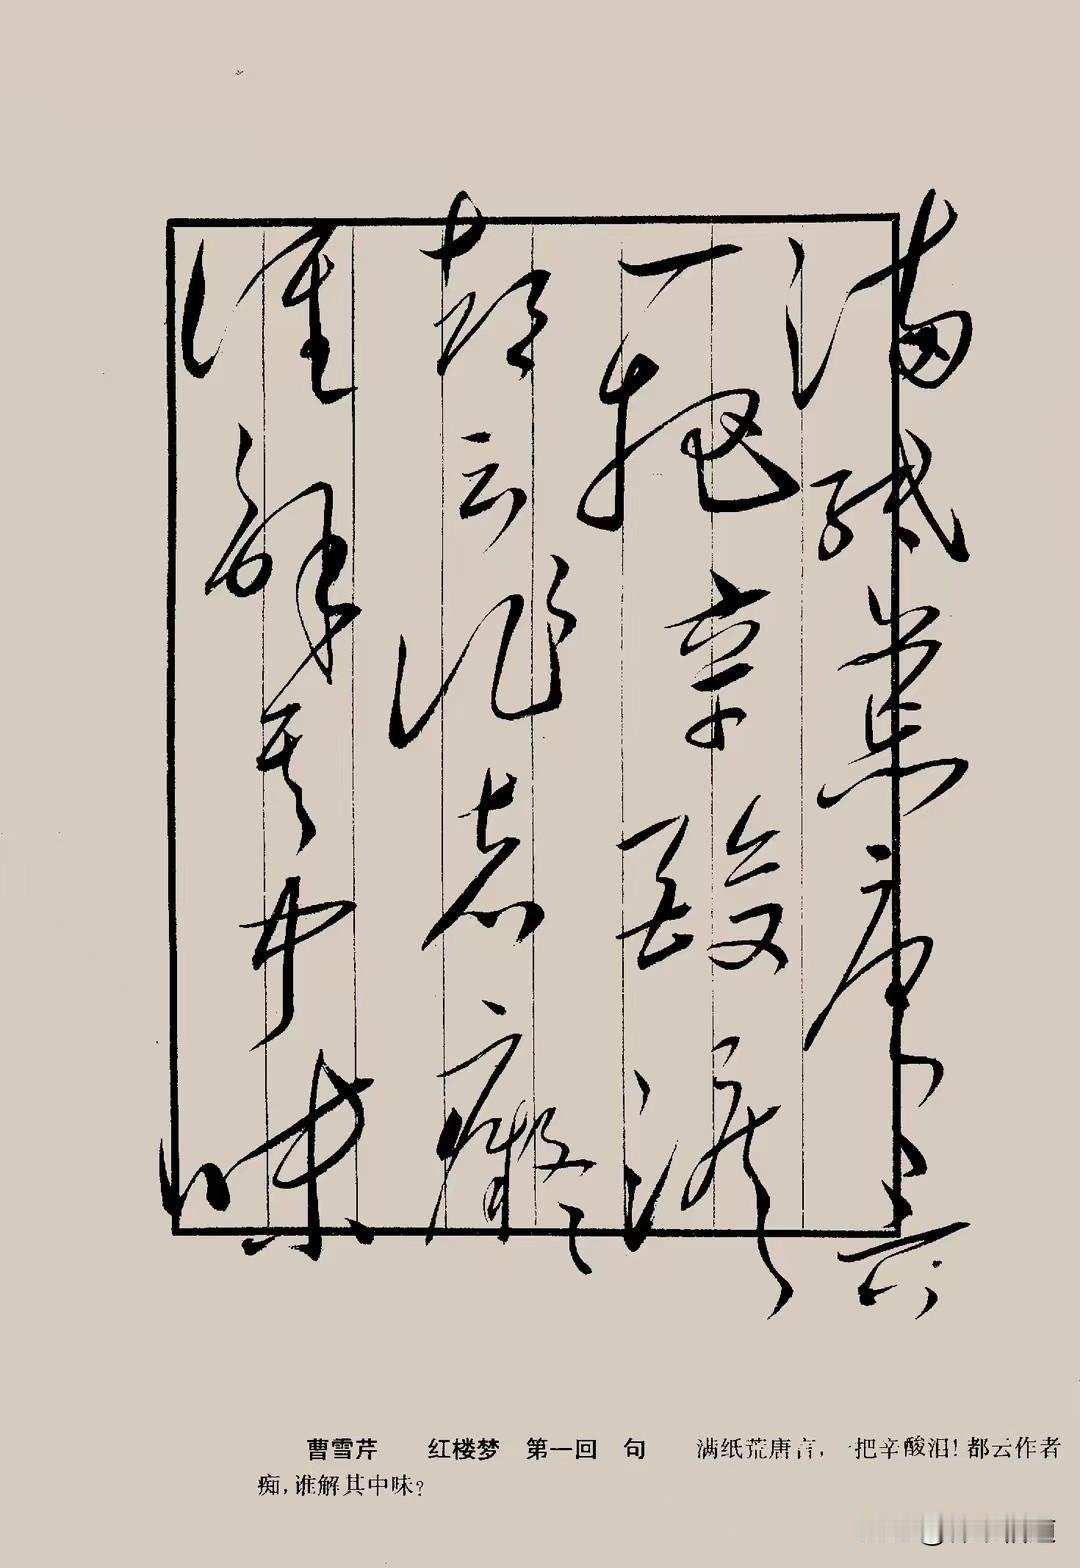 滿紙荒唐言
一把辛酸淚
都云作者癡
誰解其中味
曹雪芹 红楼梦 第一回 句 满纸荒唐言，一把辛酸泪！都云作者
痴，谁解其中味？